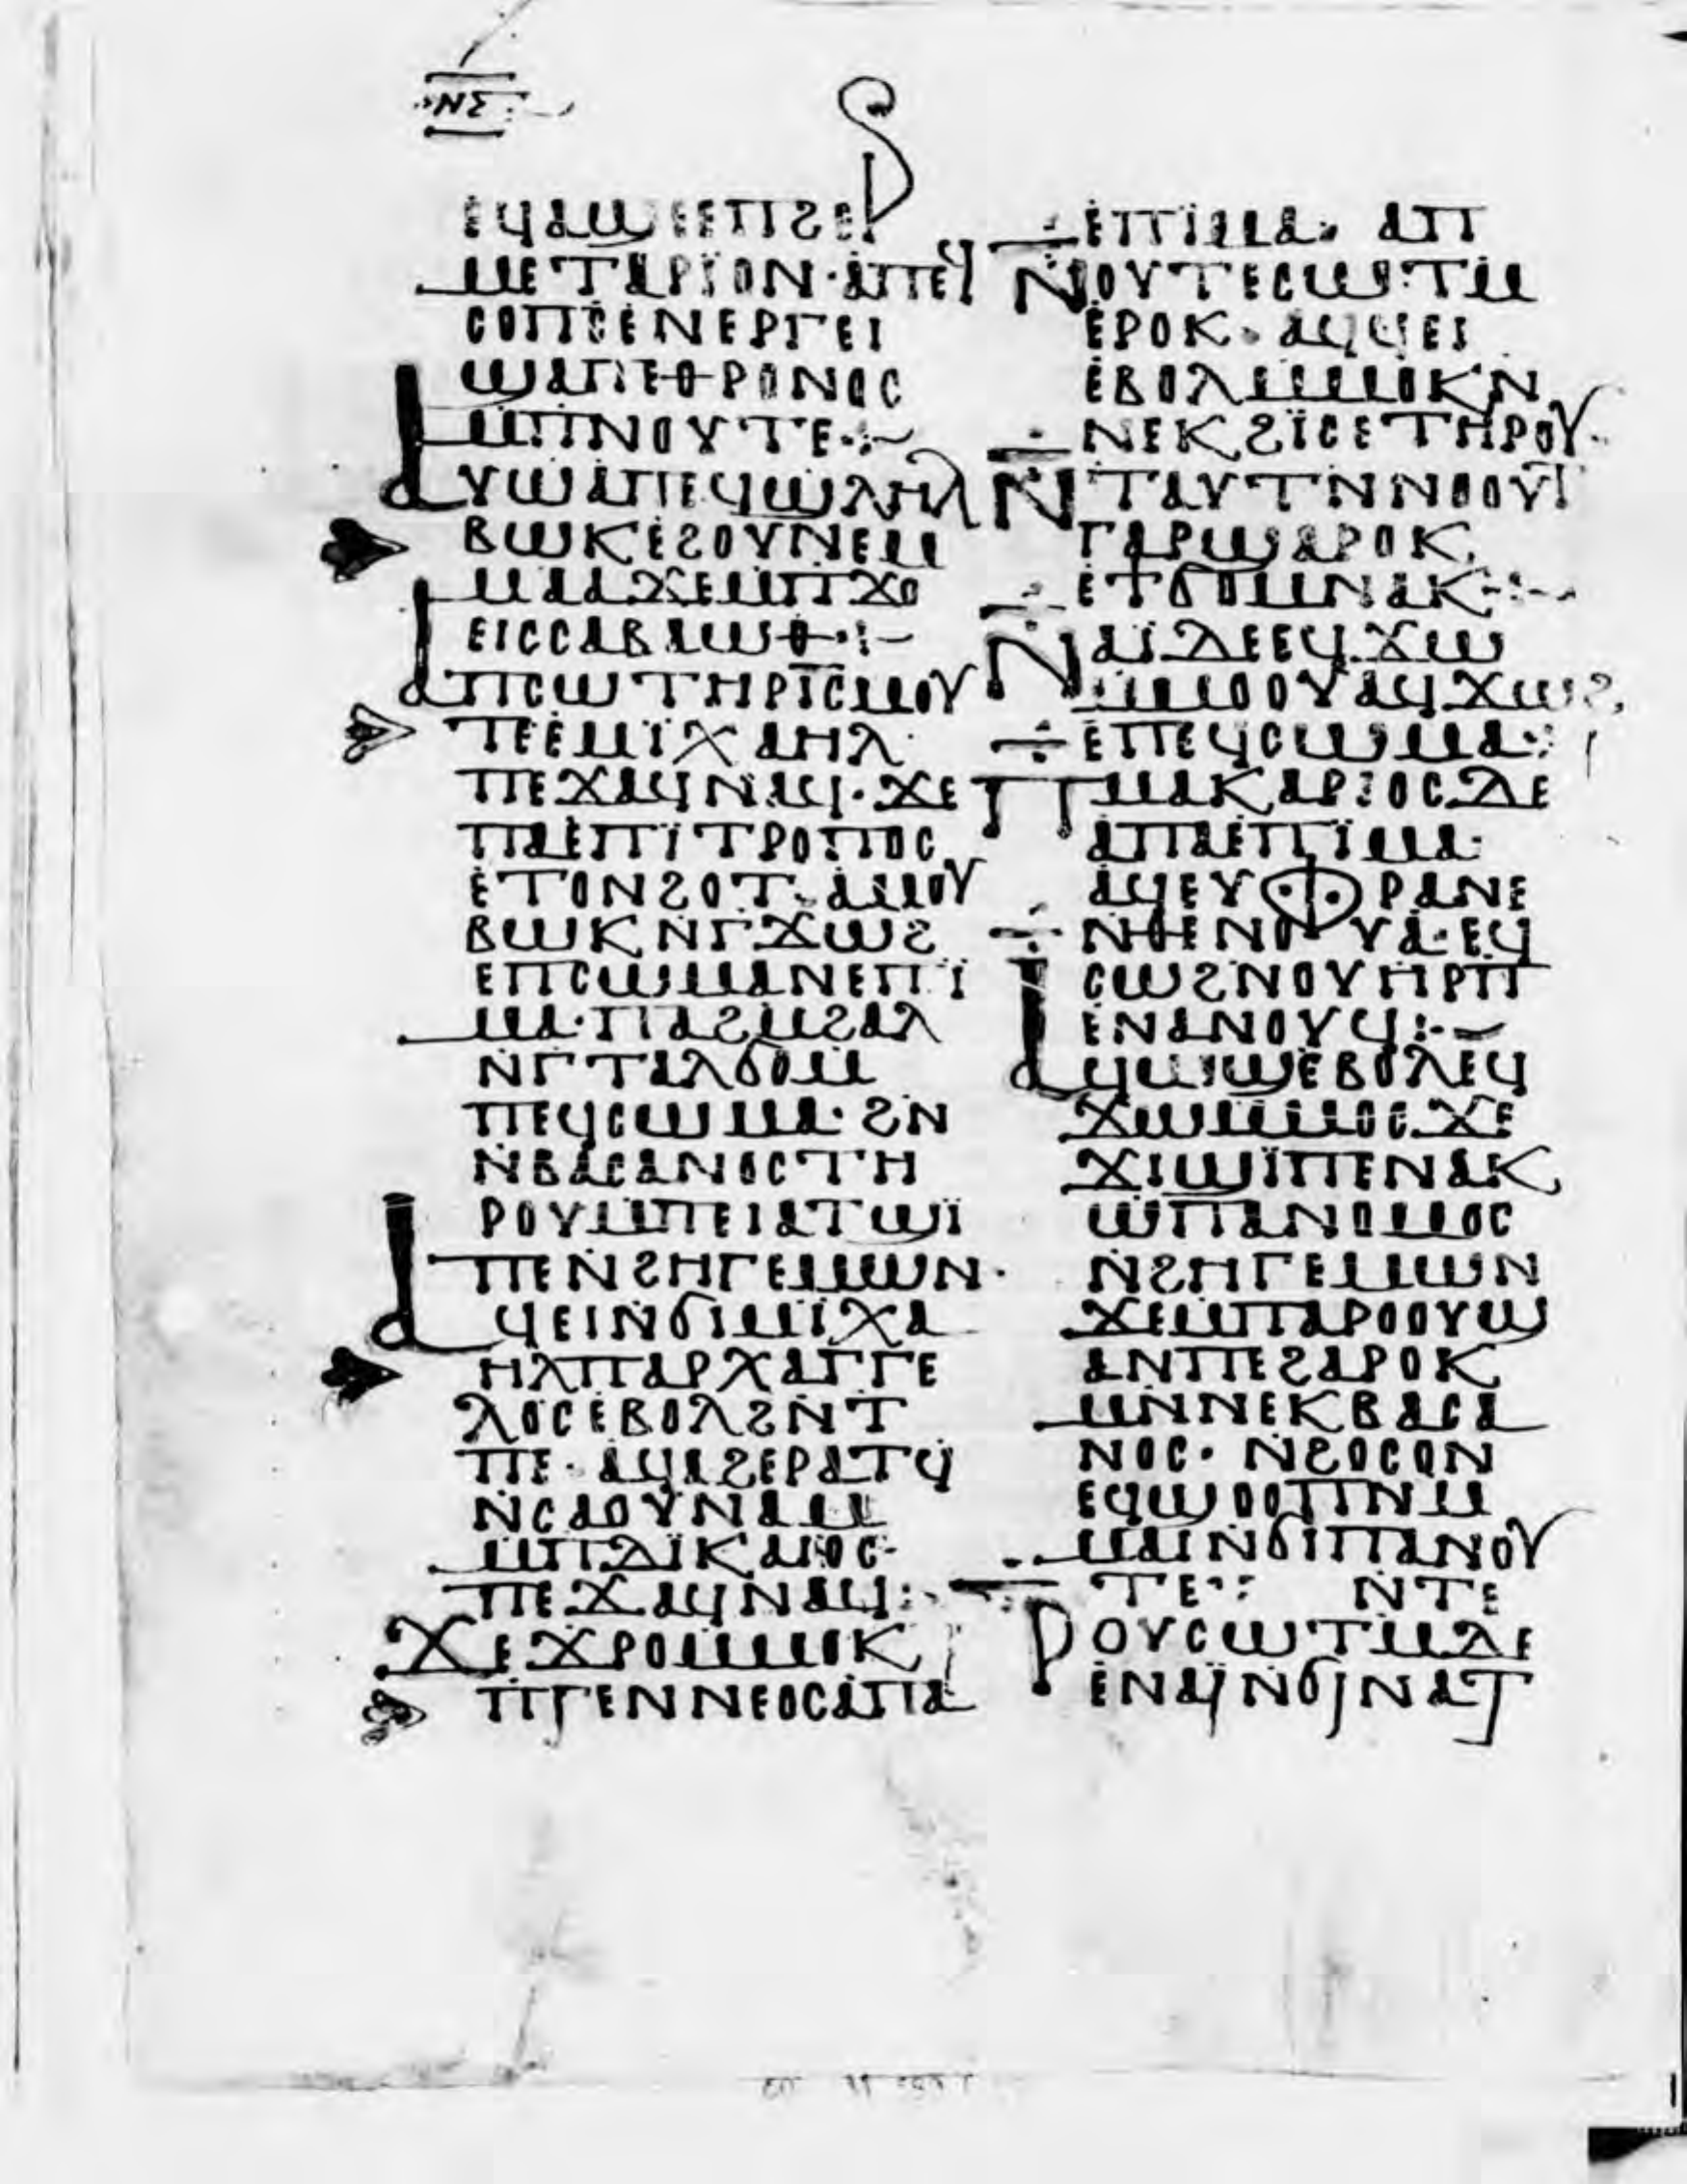 ⲛⲋ
ⲉϥⲁϣⲉⲉⲡϩⲉⲣ
ⲙⲉⲧⲁⲣⲓⲟⲛ· ⲁⲡⲉϥ
ⲥⲟⲡⲥⲉⲛⲉⲣⲅⲉⲓ
ϣⲁⲡⲉⲑⲣⲟⲛⲟⲥ
ⲙⲡⲛⲟⲩⲧⲉ·:~
ⲁⲩⲱⲁⲡⲉϥϣⲗⲏⲗ
ⲃⲱⲕⲉϩⲟⲩⲛⲉⲙ
ⲙⲁⲁϫⲉⲙⲡϫⲟ
ⲉⲓⲥⲥⲁⲃⲁⲱⲑ·:–
ⲁⲡⲥⲱⲧⲏⲣⲓ̅ⲥ̅ⲙⲟⲩ
ⲧⲉⲉⲙⲓ̈ⲭⲁⲏⲗ
ⲡⲉϫⲁϥⲛⲁϥ· ϫⲉ
ⲡⲁⲉⲡⲓ̈ⲧⲣⲟⲡⲟⲥ
ⲉⲧⲟⲛϩⲟⲧ· ⲁⲙⲟⲩ
ⲃⲱⲕⲛⲅϫⲱϩ
ⲉⲡⲥⲱⲙⲁⲛⲉⲡⲓ̈
ⲙⲁ· ⲡⲁϩⲙϩⲁⲗ
ⲛⲅⲧⲁⲗϭⲟⲙ
ⲡⲉϥⲥⲱⲙⲁ· ϩⲛ
ⲛⲃⲁⲥⲁⲛⲟⲥⲧⲏ
ⲣⲟⲩⲙⲡⲉⲓⲁⲧϣⲓ̈
ⲡⲉⲛϩⲏⲅⲉⲙⲱⲛ·
ⲁϥⲉⲓⲛϭⲓⲙⲓ̈ⲭⲁ
ⲏⲗⲡⲁⲣⲭⲁⲅⲅⲉ
ⲗⲟⲥⲉⲃⲟⲗϩⲛⲧ
ⲡⲉ· ⲁϥⲁϩⲉⲣⲁⲧϥ
ⲛⲥⲁⲟⲩⲛⲁⲙ
ⲙⲡⲇⲓ̈ⲕⲁⲓⲟⲥ·
ⲡⲉϫⲁϥⲛⲁϥ:
ϫⲉϫⲣⲟⲙⲙⲟⲕ
ⲡⲅⲉⲛⲛⲉⲟⲥⲁⲡⲁ
ⲉⲡⲓ̈ⲙⲁ· ⲁⲡ
ⲛⲟⲩⲧⲉⲥⲱⲧⲙ
ⲉⲣⲟⲕ· ⲁϥϥⲉⲓ
ⲉⲃⲟⲗⲙⲙⲟⲕⲛ
ⲛⲉⲕϩⲓ̈ⲥⲉⲧⲏⲣⲟⲩ·
ⲛⲧⲁⲩⲧⲛⲛⲟⲟⲩⲧ
ⲅⲁⲣϣⲁⲣⲟⲕ
ⲉϯϭⲟⲙⲛⲁⲕ·:–
ⲛⲁⲓ̈ⲇⲉⲉϥϫⲱ
ⲙⲙⲟⲟⲩⲁϥϫⲱϩ
ⲉⲡⲉϥⲥⲱⲙⲁ·:
ⲡⲙⲁⲕⲁⲣⲓⲟⲥⲇⲉ
ⲁⲡⲁⲉⲡⲓ̈ⲙⲁ·
ⲁϥⲉⲩⲫⲣⲁⲛⲉ
ⲛⲑⲉⲛⲟⲩⲁ· ⲉϥ
ⲥⲱϩⲛⲟⲩⲏⲣⲡ
ⲉⲛⲁⲛⲟⲩϥ:·–
ⲁϥⲱϣⲉⲃⲟⲗⲉϥ
ϫⲱⲙⲙⲟⲥϫⲉ
ϫⲓϣⲓ̈ⲡⲉⲛⲁⲕ
ⲱⲡⲁⲛⲟⲙⲟⲥ
ⲛϩⲏⲅⲉⲙⲱⲛ
ϫⲉⲙⲡⲁⲣⲟⲟⲩϣ
ⲁⲛⲡⲉϩⲁⲣⲟⲕ
ⲙⲛⲛⲉⲕⲃⲁⲥⲁ
ⲛⲟⲥ· ⲛϩⲟⲥⲟⲛ
ⲉϥϣⲟⲟⲡⲛⲙ
ⲙⲁⲓⲛϭⲓⲡⲁⲛⲟⲩ
ⲧⲉ·: ⲛⲧⲉ
ⲣⲟⲩⲥⲱⲧⲙⲇⲉ
ⲉⲛⲁⲓ̈ⲛϭⲓⲛⲁⲧ